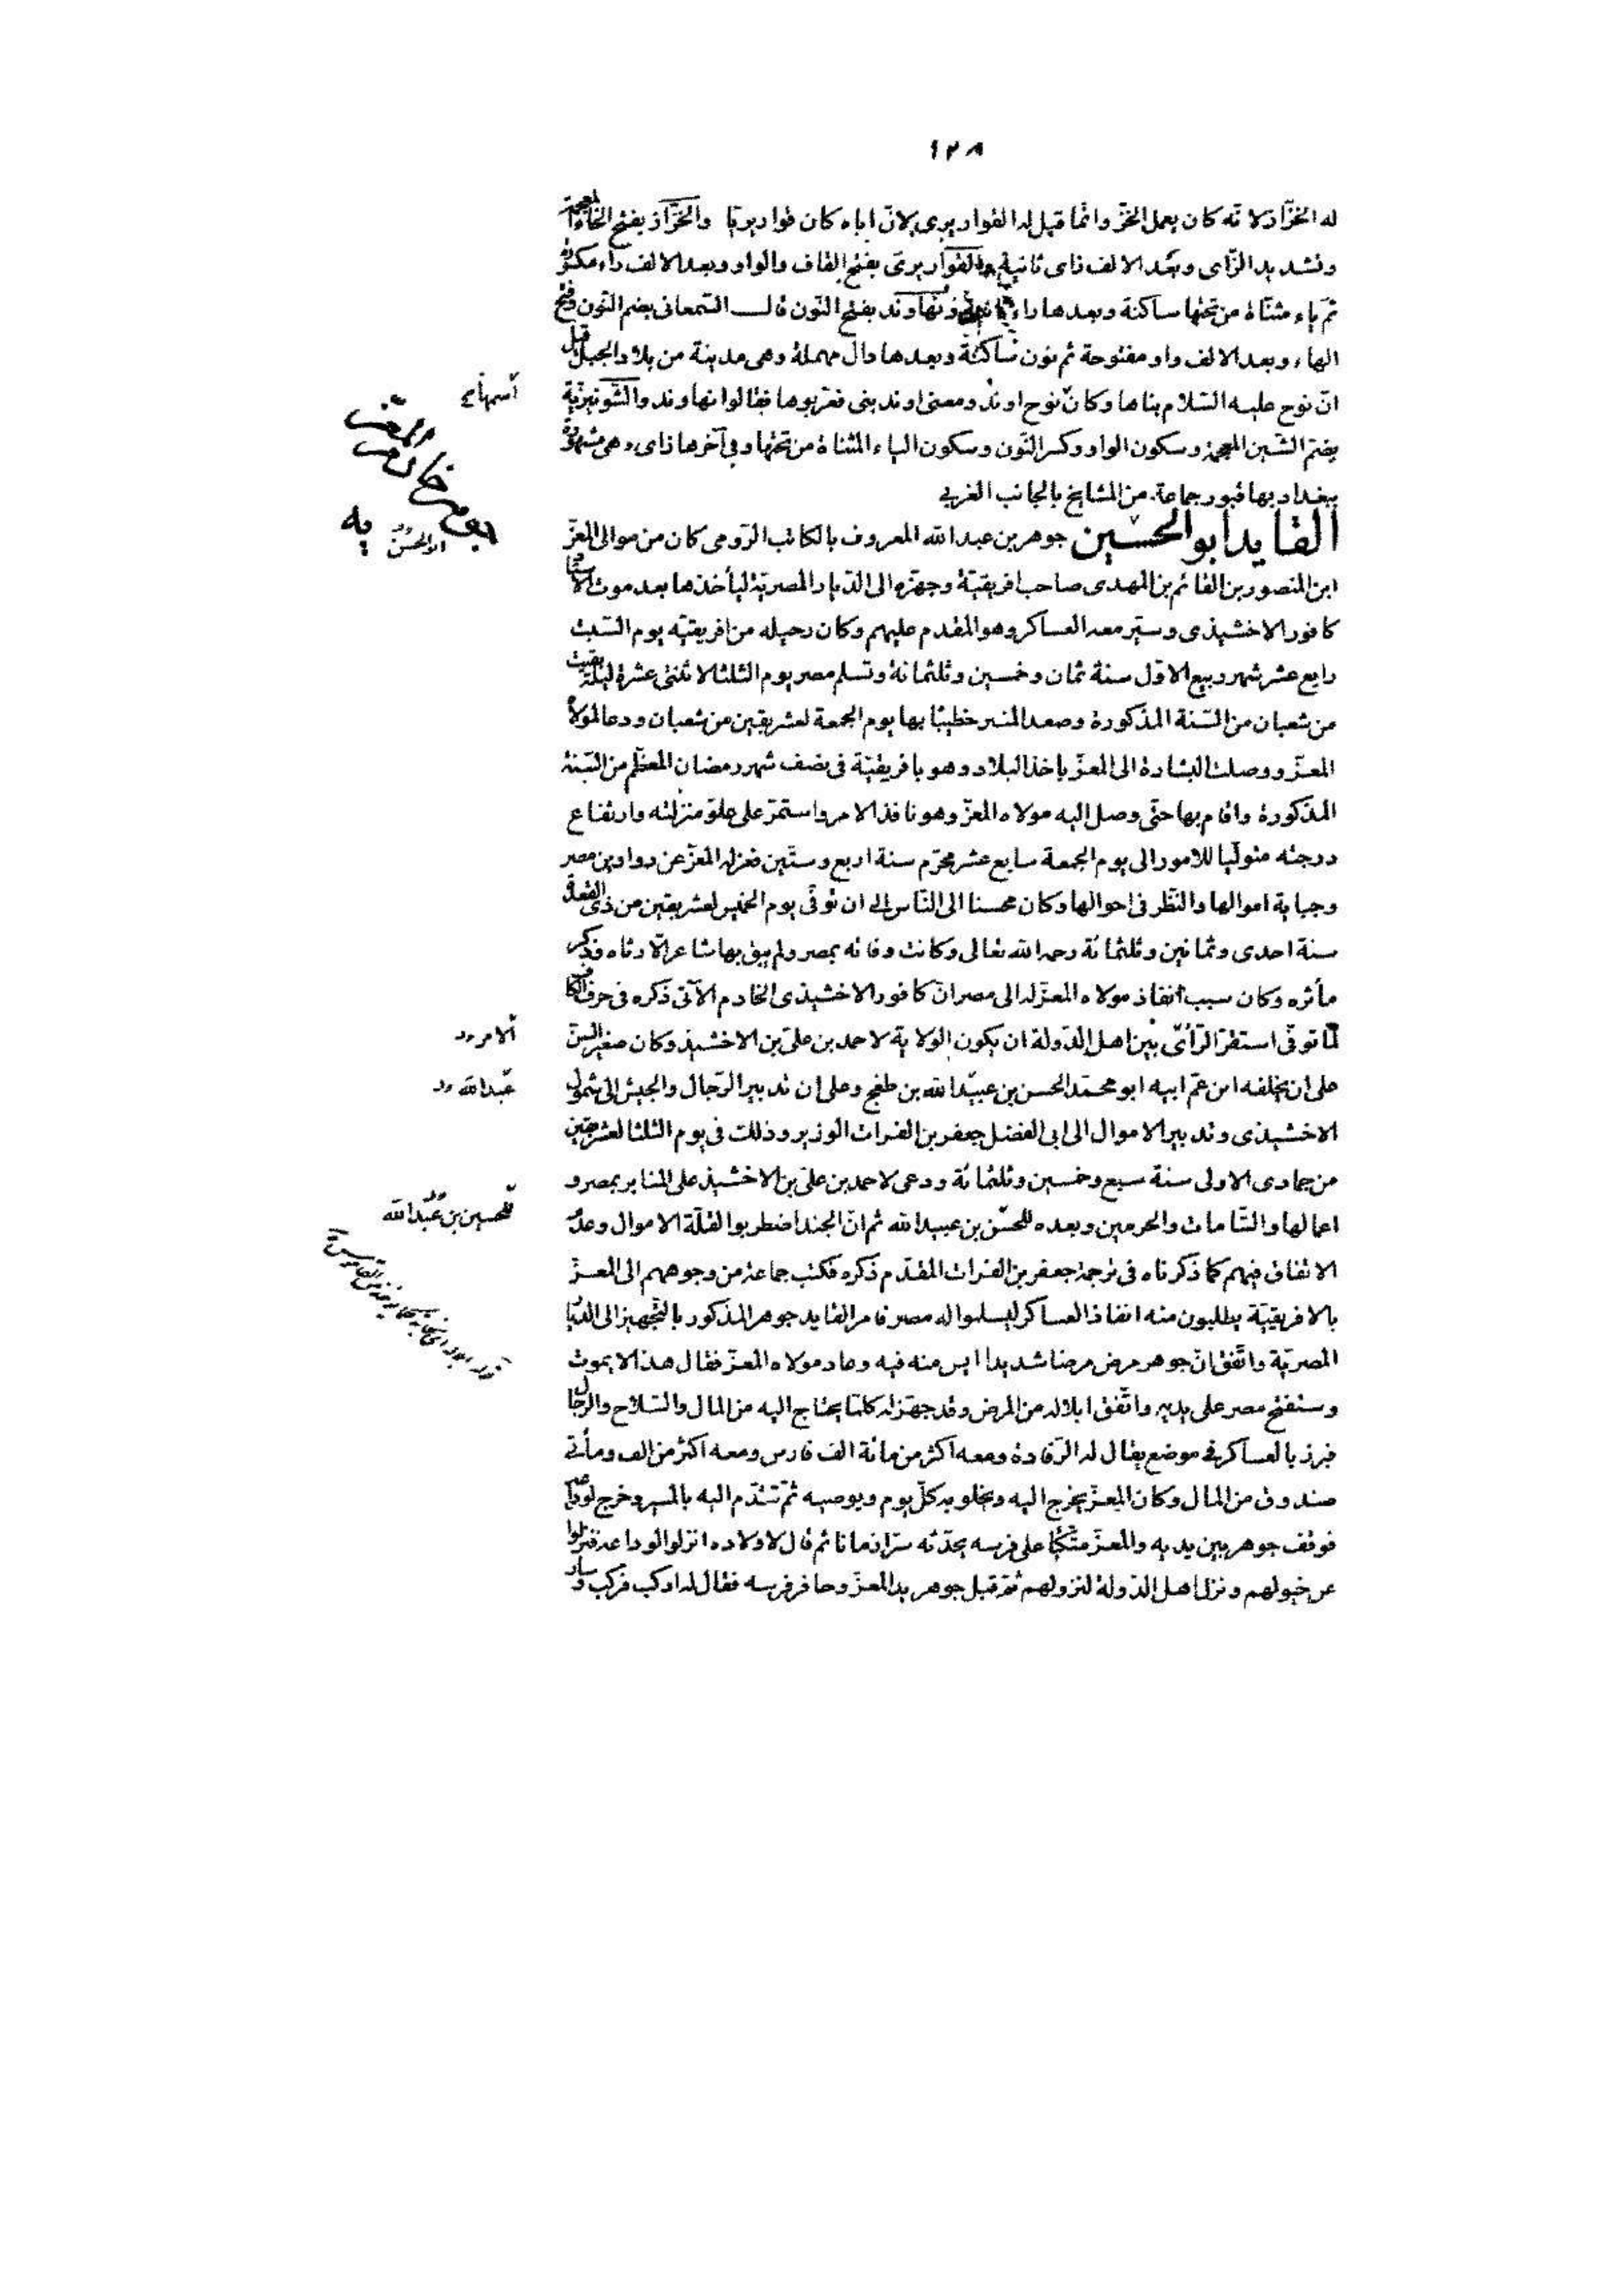 ١٢٨
له الخزّاز لانّه كان يعمل الخزّ وانّما قيل له القواريرى لانّ اباه كان قواريريّا والخزّاز بفتح الخاء المعجمة
وتشديد الزّاى وبعد الالف زاى ثانية والقواريرىّ بفتح القاف والواو وبعد الالف راء مكسورة
ثمّ ياء مثنّاة من تحتها ساكنة وبعدها راء ثانية ونهاوند بفتح النّون قال السّمعانى بضم النّون وفتح
الهاء وبعد الالف واو مفتوحة ثم نون ساكنة وبعدها دال مهملة وهى مدينة من بلاد الجبل قيل
انّ نوح عليه السّلام بناها وكان نوح اوند ومعنى اوند بنى فعرّبوها فقالوا نهاوند والشّونيزيّة
بضم الشّين المعجمة وسكون الواو وكسر النّون وسكون الياء المثناة من تحتها وفى آخرها زاى وهى مشهورة
ببغداد بها قبور جماعة من المشايخ بالجانب الغربى
القايد ابو الحسين جوهر بن عبد الله المعروف بالكاتب الرّومى كان من موالى المعزّ
ابن المنصور بن القائم بن المهدى صاحب افريقيّة وجهّزه الى الدّيار المصريّة ليأخذها بعد موت الاستاذ
كافور الاخشيذى وسيّر معه العساكر وهو المقدم عليهم وكان رحيله من افريقيّه يوم السّبت
رابع عشر شهر ربيع الاوّل سنة ثمان وخمسين وثلثمائة وتسلم مصر يوم الثلثا لاثنتى عشرة ليلة بقيت
من شعبان من السّنة المذكورة وصعد المنبر خطيبًا بها يوم الجمعة لعشر بقين من شعبان ودعا لمولاه
المعزّ ووصلت البشارة الى المعزّ باخذ البلاد وهو بافريقيّة فى نصف شهر رمضان المعظّم من السّنة
المذكورة واقام بها حتّى وصل اليه مولاه المعزّ وهو نافذ الامر واستمرّ على علوّ منزلته وارتفاع
درجته متولّيا للامور الى يوم الجمعة سابع عشر محرّم سنة اربع وستّين فعزله المعزّ عن دواوين مصر
وجباية اموالها والنّظر فى احوالها وكان محسنا الى النّاس الى ان توفّى يوم الخميس لعشر بقين من ذى القعدة
سنة احدى وثمانين وثلثمائة رحمه الله تعالى وكانت وفاته بمصر ولم يبق بها شاعر الّا رثاه وذكر
مأثره وكان سبب انفاذ مولاه المعزّ له الى مصر انّ كافور الاخشيذى الخادم الآتى ذكره فى حرف الكاف
لمّا توفّى استقرّ الرّأى بين اهل الدّولة ان يكون الولاية لاحمد بن علىّ بن الاخشيذ وكان صغير السّن
على ان يخلفه ابن عمّ ابيه ابو محمّد الحسن بن عبيد الله بن طغج وعلى ان تدبير الرّجال والجيش الى شمول
الاخشيذى وتدبير الاموال الى ابى الفضل جعفر بن الفرات الوزير وذلك فى يوم الثلثا لعشر بقين
من جمادى الاولى سنة سبع وخمسين وثلثمائة ودعى لاحمد بن علىّ بن الاخشيذ على المنابر بمصر و
اعمالها والشّامات والحرمين وبعده للحسن بن عبيد الله ثم انّ الجند اضطربوا لقلّة الاموال وعدم
الانفاق فيهم كما ذكرناه فى ترجمة جعفر بن الفرات المقدّم ذكره فكتب جماعة من وجوههم الى المعزّ
بالافريقيّة يطلبون منه انفاذ العساكر ليسلموا له مصر فامر القايد جوهر المذكور بالتّجهيز الى الدّيار
المصريّة واتّفق انّ جوهر مرض مرضا شديدا ايس منه فيه وعاد مولاه المعزّ فقال هذا لا يموت
وستفتح مصر على يديه واتّفق ابلاله من المرض وقد جهّز له كلّما يحتاج اليه من المال والسّلاح والرجال
فبرز بالعساكر فى موضع يقال له الرّقادة ومعه اكثر من مائة الف فارس ومعه اكثر من الف ومأتى
صندوق من المال وكان المعزّ يخرج اليه ويخلو به كلّ يوم ويوصيه ثمّ تقدّم اليه بالمسير وخرج لوداعه
فوقف جوهر بين يديه والمعزّ متّكئا على فرسه يحدّثه سرّا زمانا ثم قال لاولاده انزلوا لوداعه فنزلوا
عن خيولهم ونزل اهل الدّولة لنزولهم ثمّ قبل جوهر يد المعزّ وحافر فرسه فقال له اركب فركب وسار
ابو الحسن
الامر
عبد الله
للحسين بن عبد الله